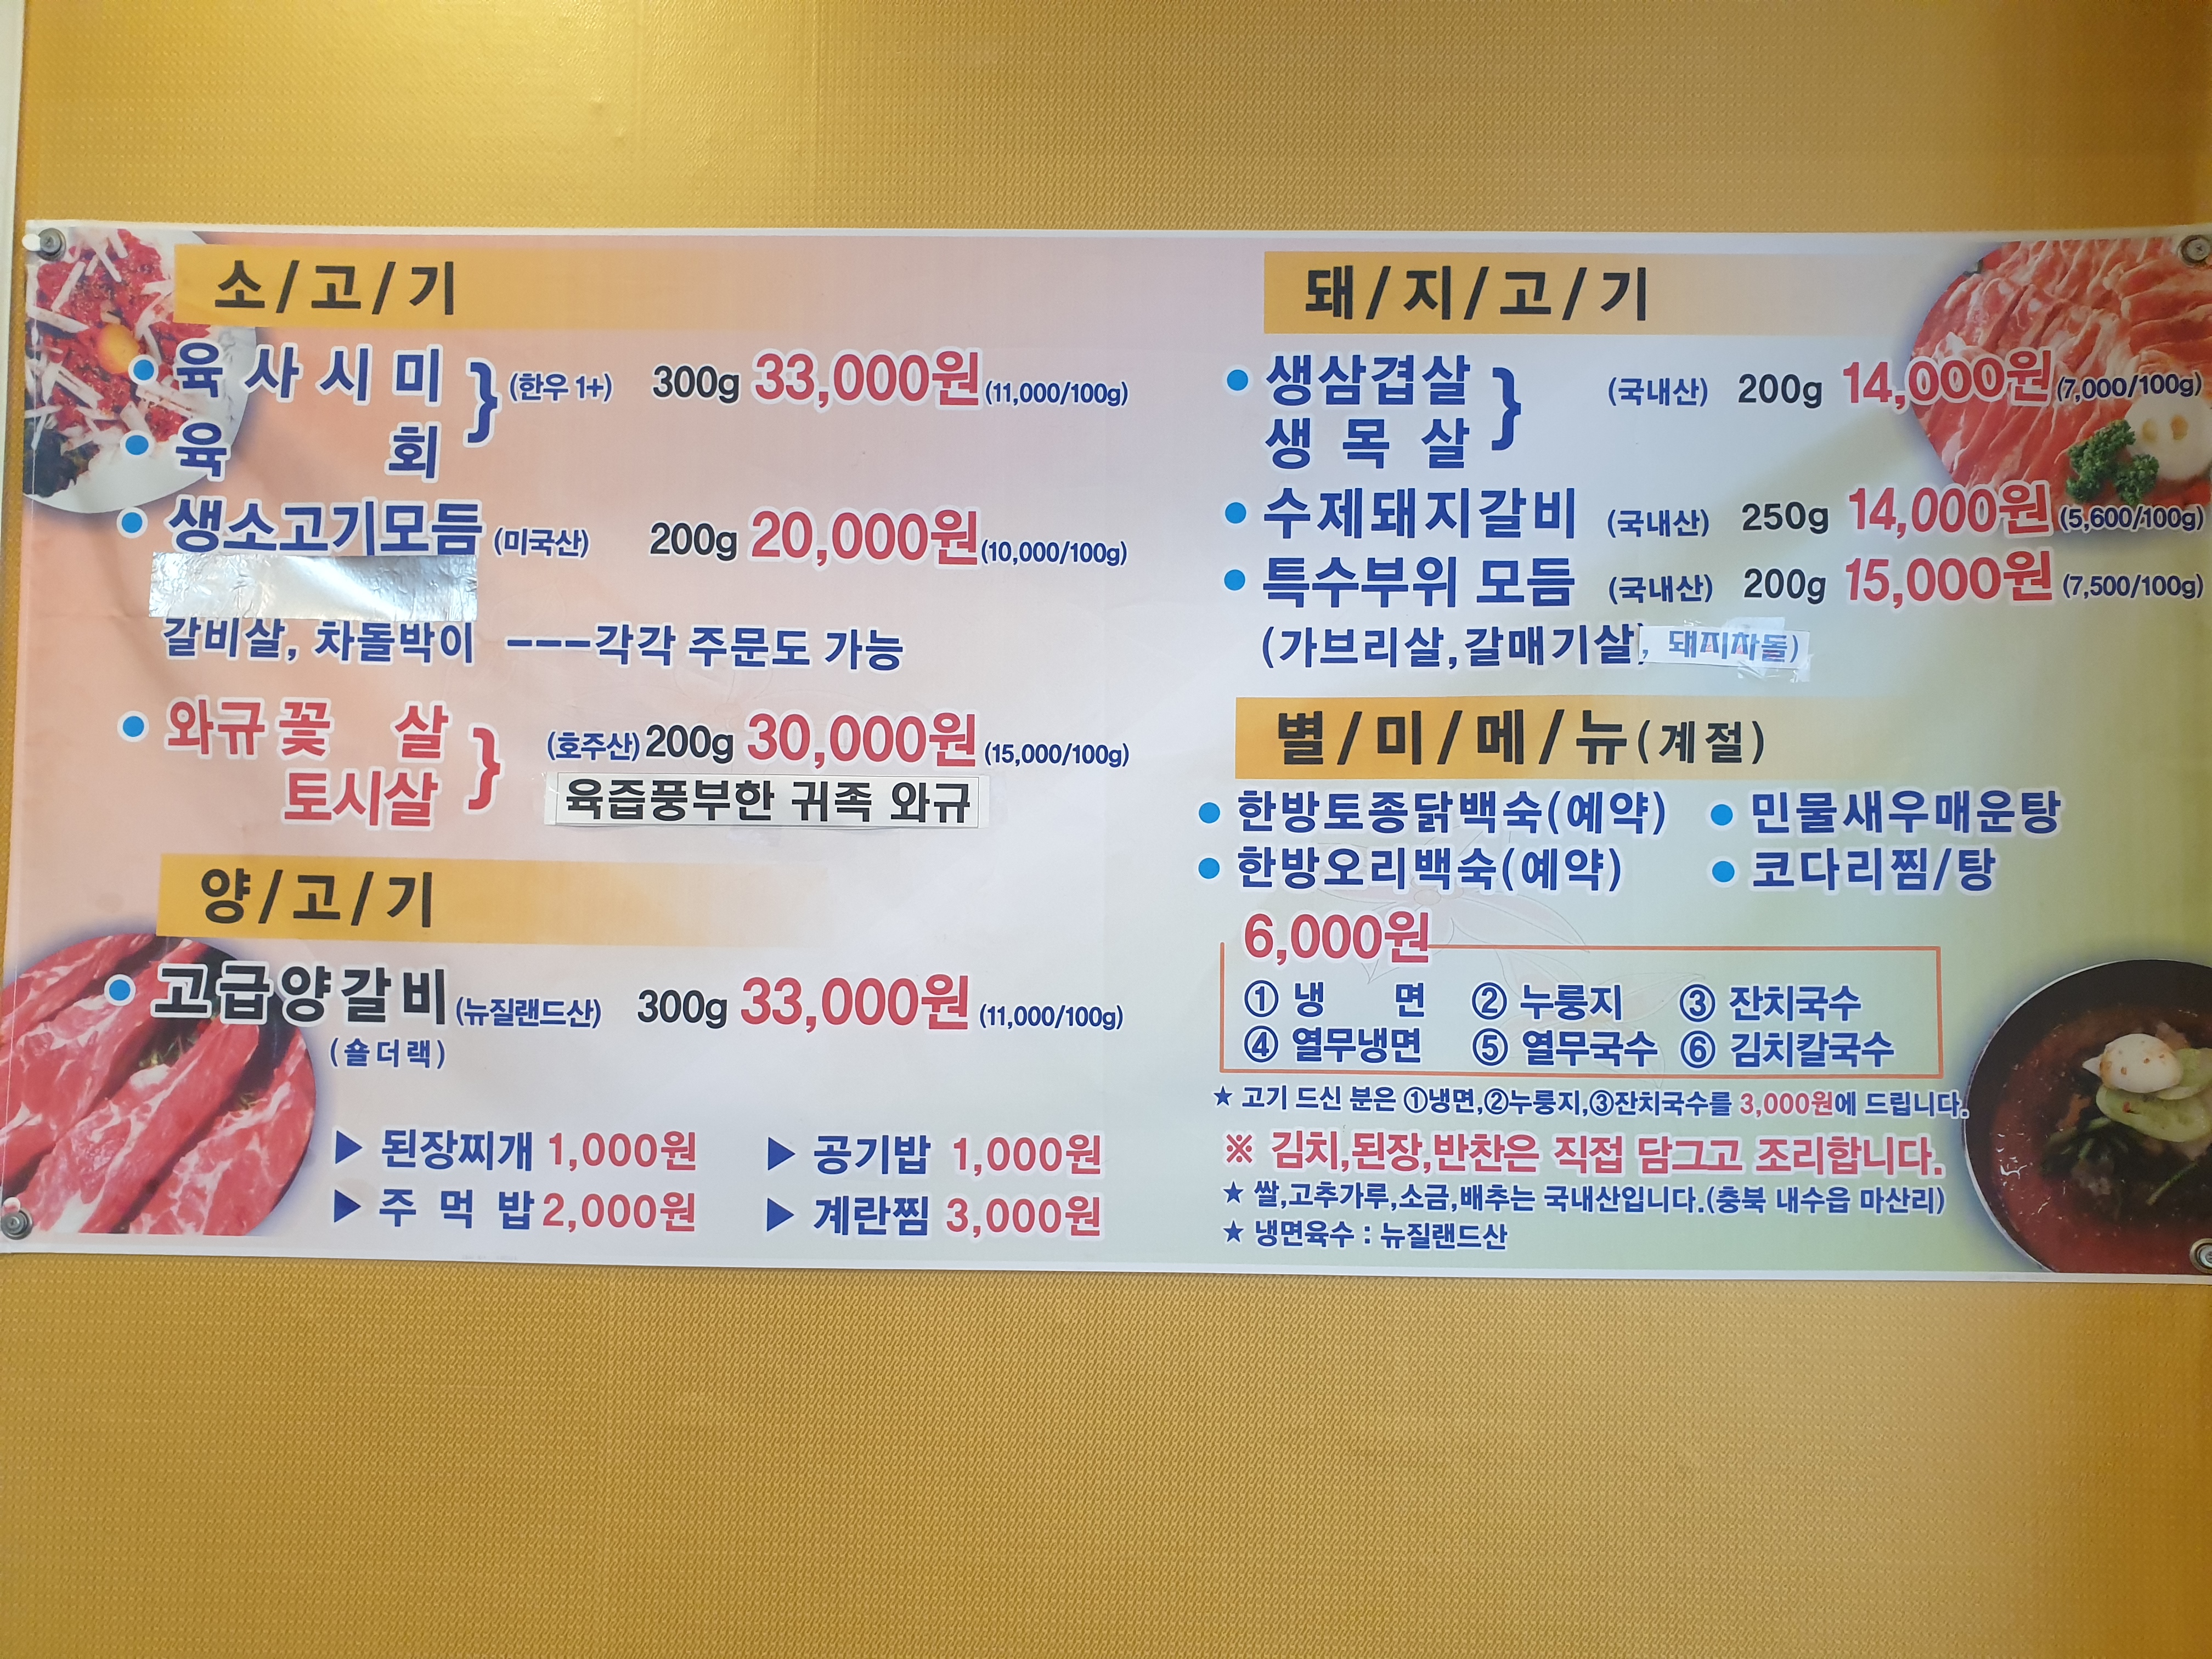 소/고/기
육사시미
육회
(한우 1+) 300g 33,000원 (11,000/100g)
생소고기모듬 (미국산) 200g 20,000원 (10,000/100g)
갈비살, 차돌박이 ---각각 주문도 가능
와규꽃살
토시살
(호주산) 200g 30,000원 (15,000/100g)
육즙풍부한 귀족 와규
양/고/기
고급양갈비 (뉴질랜드산) 300g 33,000원 (11,000/100g)
(숄더랙)
▶ 된장찌개 1,000원 ▶ 공기밥 1,000원
▶ 주먹밥 2,000원 ▶ 계란찜 3,000원
돼/지/고/기
생삼겹살
생목살
(국내산) 200g 14,000원 (7,000/100g)
수제돼지갈비 (국내산) 250g 14,000원 (5,600/100g)
특수부위 모듬 (국내산) 200g 15,000원 (7,500/100g)
(가브리살,갈매기살, 돼지차돌)
별/미/메/뉴(계절)
한방토종닭백숙(예약) 민물새우매운탕
한방오리백숙(예약) 코다리찜/탕
6,000원
① 냉면 ② 누룽지 ③ 잔치국수
④ 열무냉면 ⑤ 열무국수 ⑥ 김치칼국수
★ 고기 드신 분은 ①냉면,②누룽지,③잔치국수를 3,000원에 드립니다.
※ 김치,된장,반찬은 직접 담그고 조리합니다.
★ 쌀,고추가루,소금,배추는 국내산입니다.(충북 내수읍 마산리)
★ 냉면육수 : 뉴질랜드산